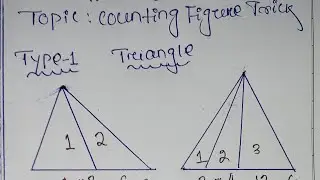 Topic: Counting Figure Trick
Type-1 Triangle
1 2
1 2 3